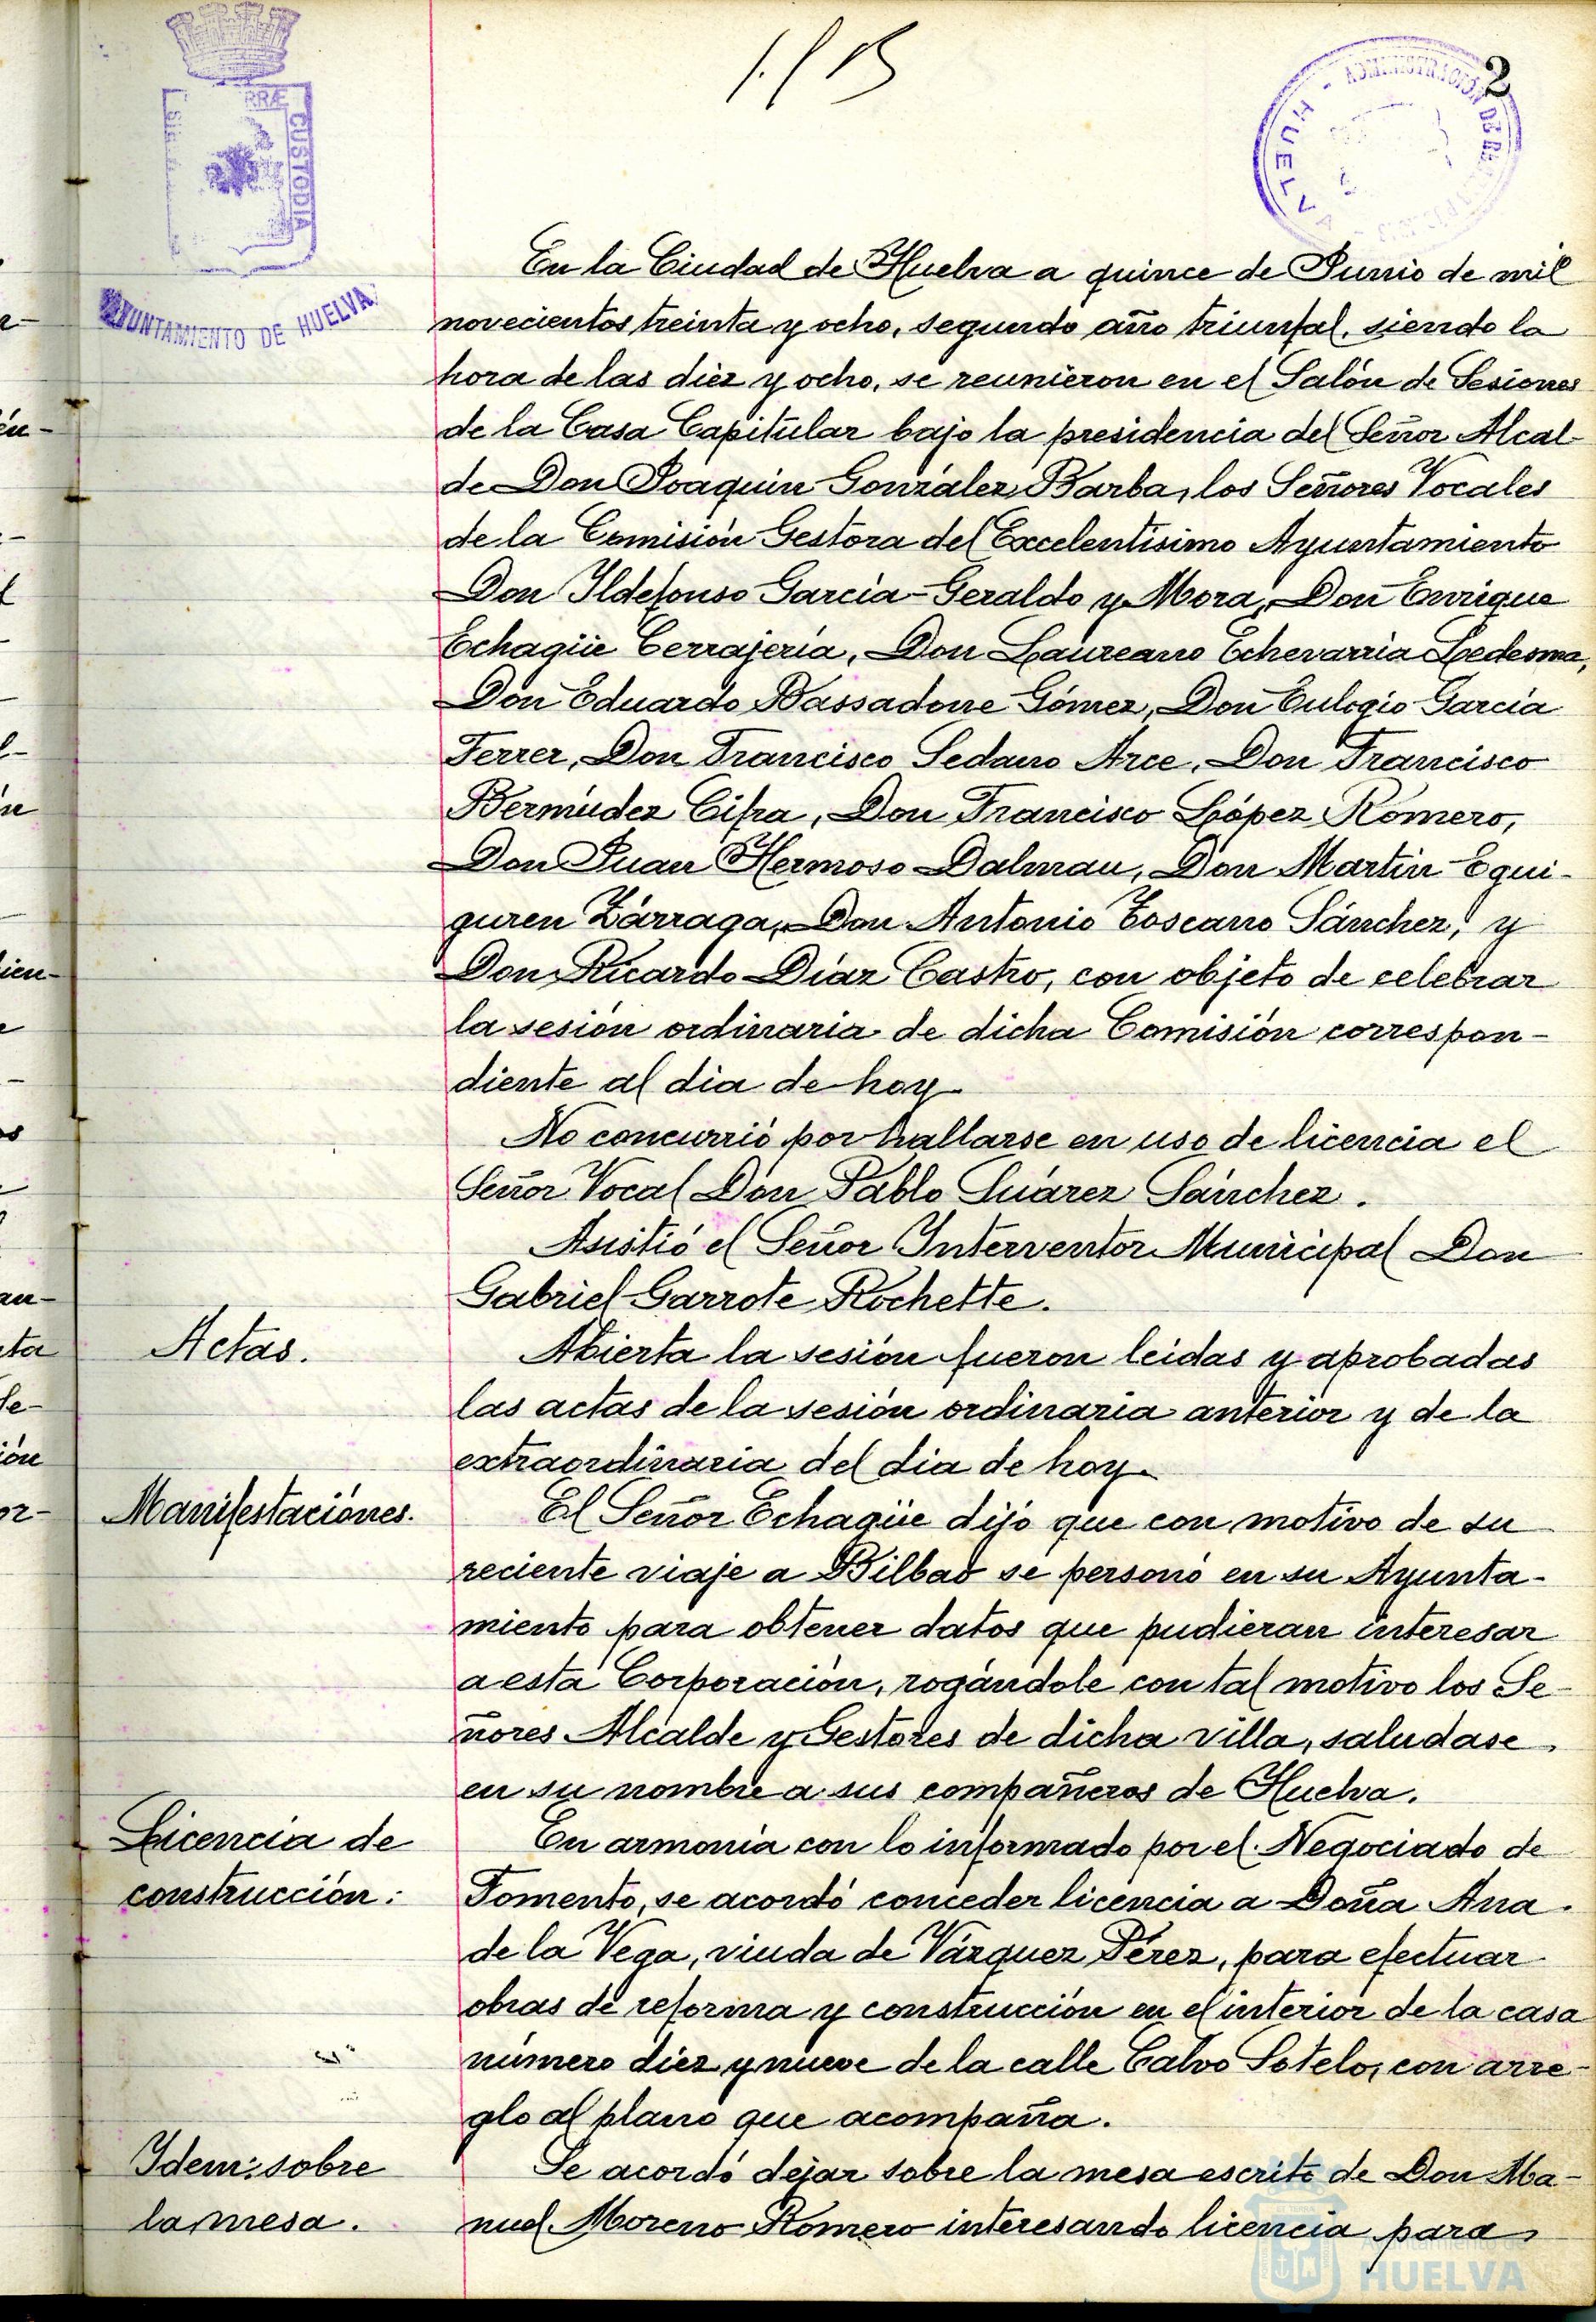 1/15
2
RRÆ
CUSTODIA
AYUNTAMIENTO DE HUELVA
ADMINISTRACIÓN DE
HUELVA
En la Ciudad de Huelva a quince de Junio de mil
novecientos treinta y ocho, segundo año triunfal, siendo la
hora de las diez y ocho, se reunieron en el Salón de Sesiones
de la Casa Capitular bajo la presidencia del Señor Alcal-
de Don Joaquin González Barba, los Señores Vocales
de la Comisión Gestora del Excelentísimo Ayuntamiento
Don Ildefonso García-Geraldo y Mora, Don Enrique
Echagüe Cerrajería, Don Laureano Echevarria Ledesma,
Don Eduardo Bassadone Gómez, Don Eulogio García
Ferrer, Don Francisco Sedano Arce, Don Francisco
Bermúdez Cifra, Don Francisco López Romero,
Don Juan Hermoso Dalmau, Don Martín Egui-
guren Zárraga, Don Antonio Toscano Sánchez, y
Don Ricardo Díaz Castro, con objeto de celebrar
la sesión ordinaria de dicha Comisión correspon-
diente al dia de hoy
No concurrió por hallarse en uso de licencia el
Señor Vocal Don Pablo Suárez Sánchez.
Asistió el Señor Interventor Municipal Don
Gabriel Garrote Rochette.
Actas.
Abierta la sesión fueron leidas y aprobadas
las actas de la sesión ordinaria anterior y de la
extraordinaria del dia de hoy.
Manifestaciónes.
El Señor Echagüe dijo que con motivo de su
reciente viaje a Bilbao se personó en su Ayunta-
miento para obtener datos que pudieran interesar
a esta Corporación, rogándole con tal motivo los Se-
ñores Alcalde y Gestores de dicha villa, saludase
en su nombre a sus compañeros de Huelva.
Licencia de
construcción:
En armonía con lo informado por el Negociado de
Fomento, se acordó conceder licencia a Doña Ana
de la Vega, viuda de Vázquez Pérez, para efectuar
obras de reforma y construcción en el interior de la casa
número diez y nueve de la calle Calvo Sotelo, con arre-
glo al plano que acompaña.
Idem: sobre
la mesa.
Se acordó dejar sobre la mesa escrito de Don Ma-
nuel Moreno Romero interesando licencia para
Ayuntamiento de
HUELVA